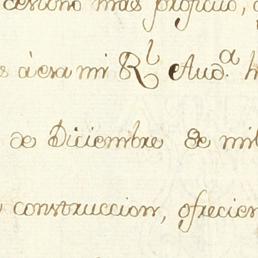 mas proficuo,
à esa mi Rl Auda.
de Diciembre de mil
construccion, ofrecien